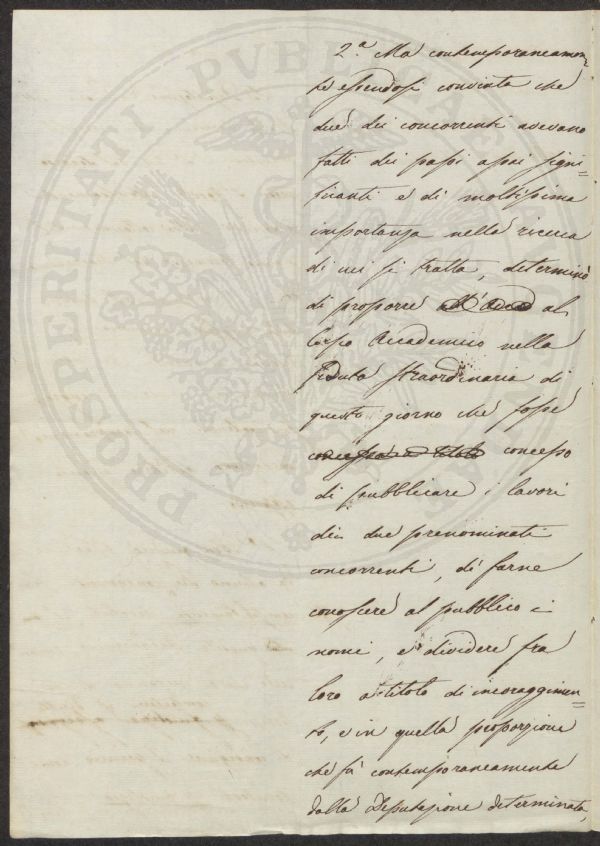 PROSPERITATI PVBLICAE
2.a Ma contemporaneamen-
te essendosi convinta che
due dei concorrenti avevano
fatti dei passi assai signi=
ficanti e di moltissima
importanza nella ricerca
di cui si tratta, determinò
di proporre all'Acad al
Corpo Accademico nella
Seduta straordinaria di
questo giorno che fosse
concesso a titolo concesso
di pubblicare i lavori
dei due prenominati
concorrenti, di farne
conoscere al pubblico i
nomi, e dividere fra
loro a titolo di incoraggimen=
to, e in quella proporzione
che fu contemporaneamente
dalla Deputazione determinata,